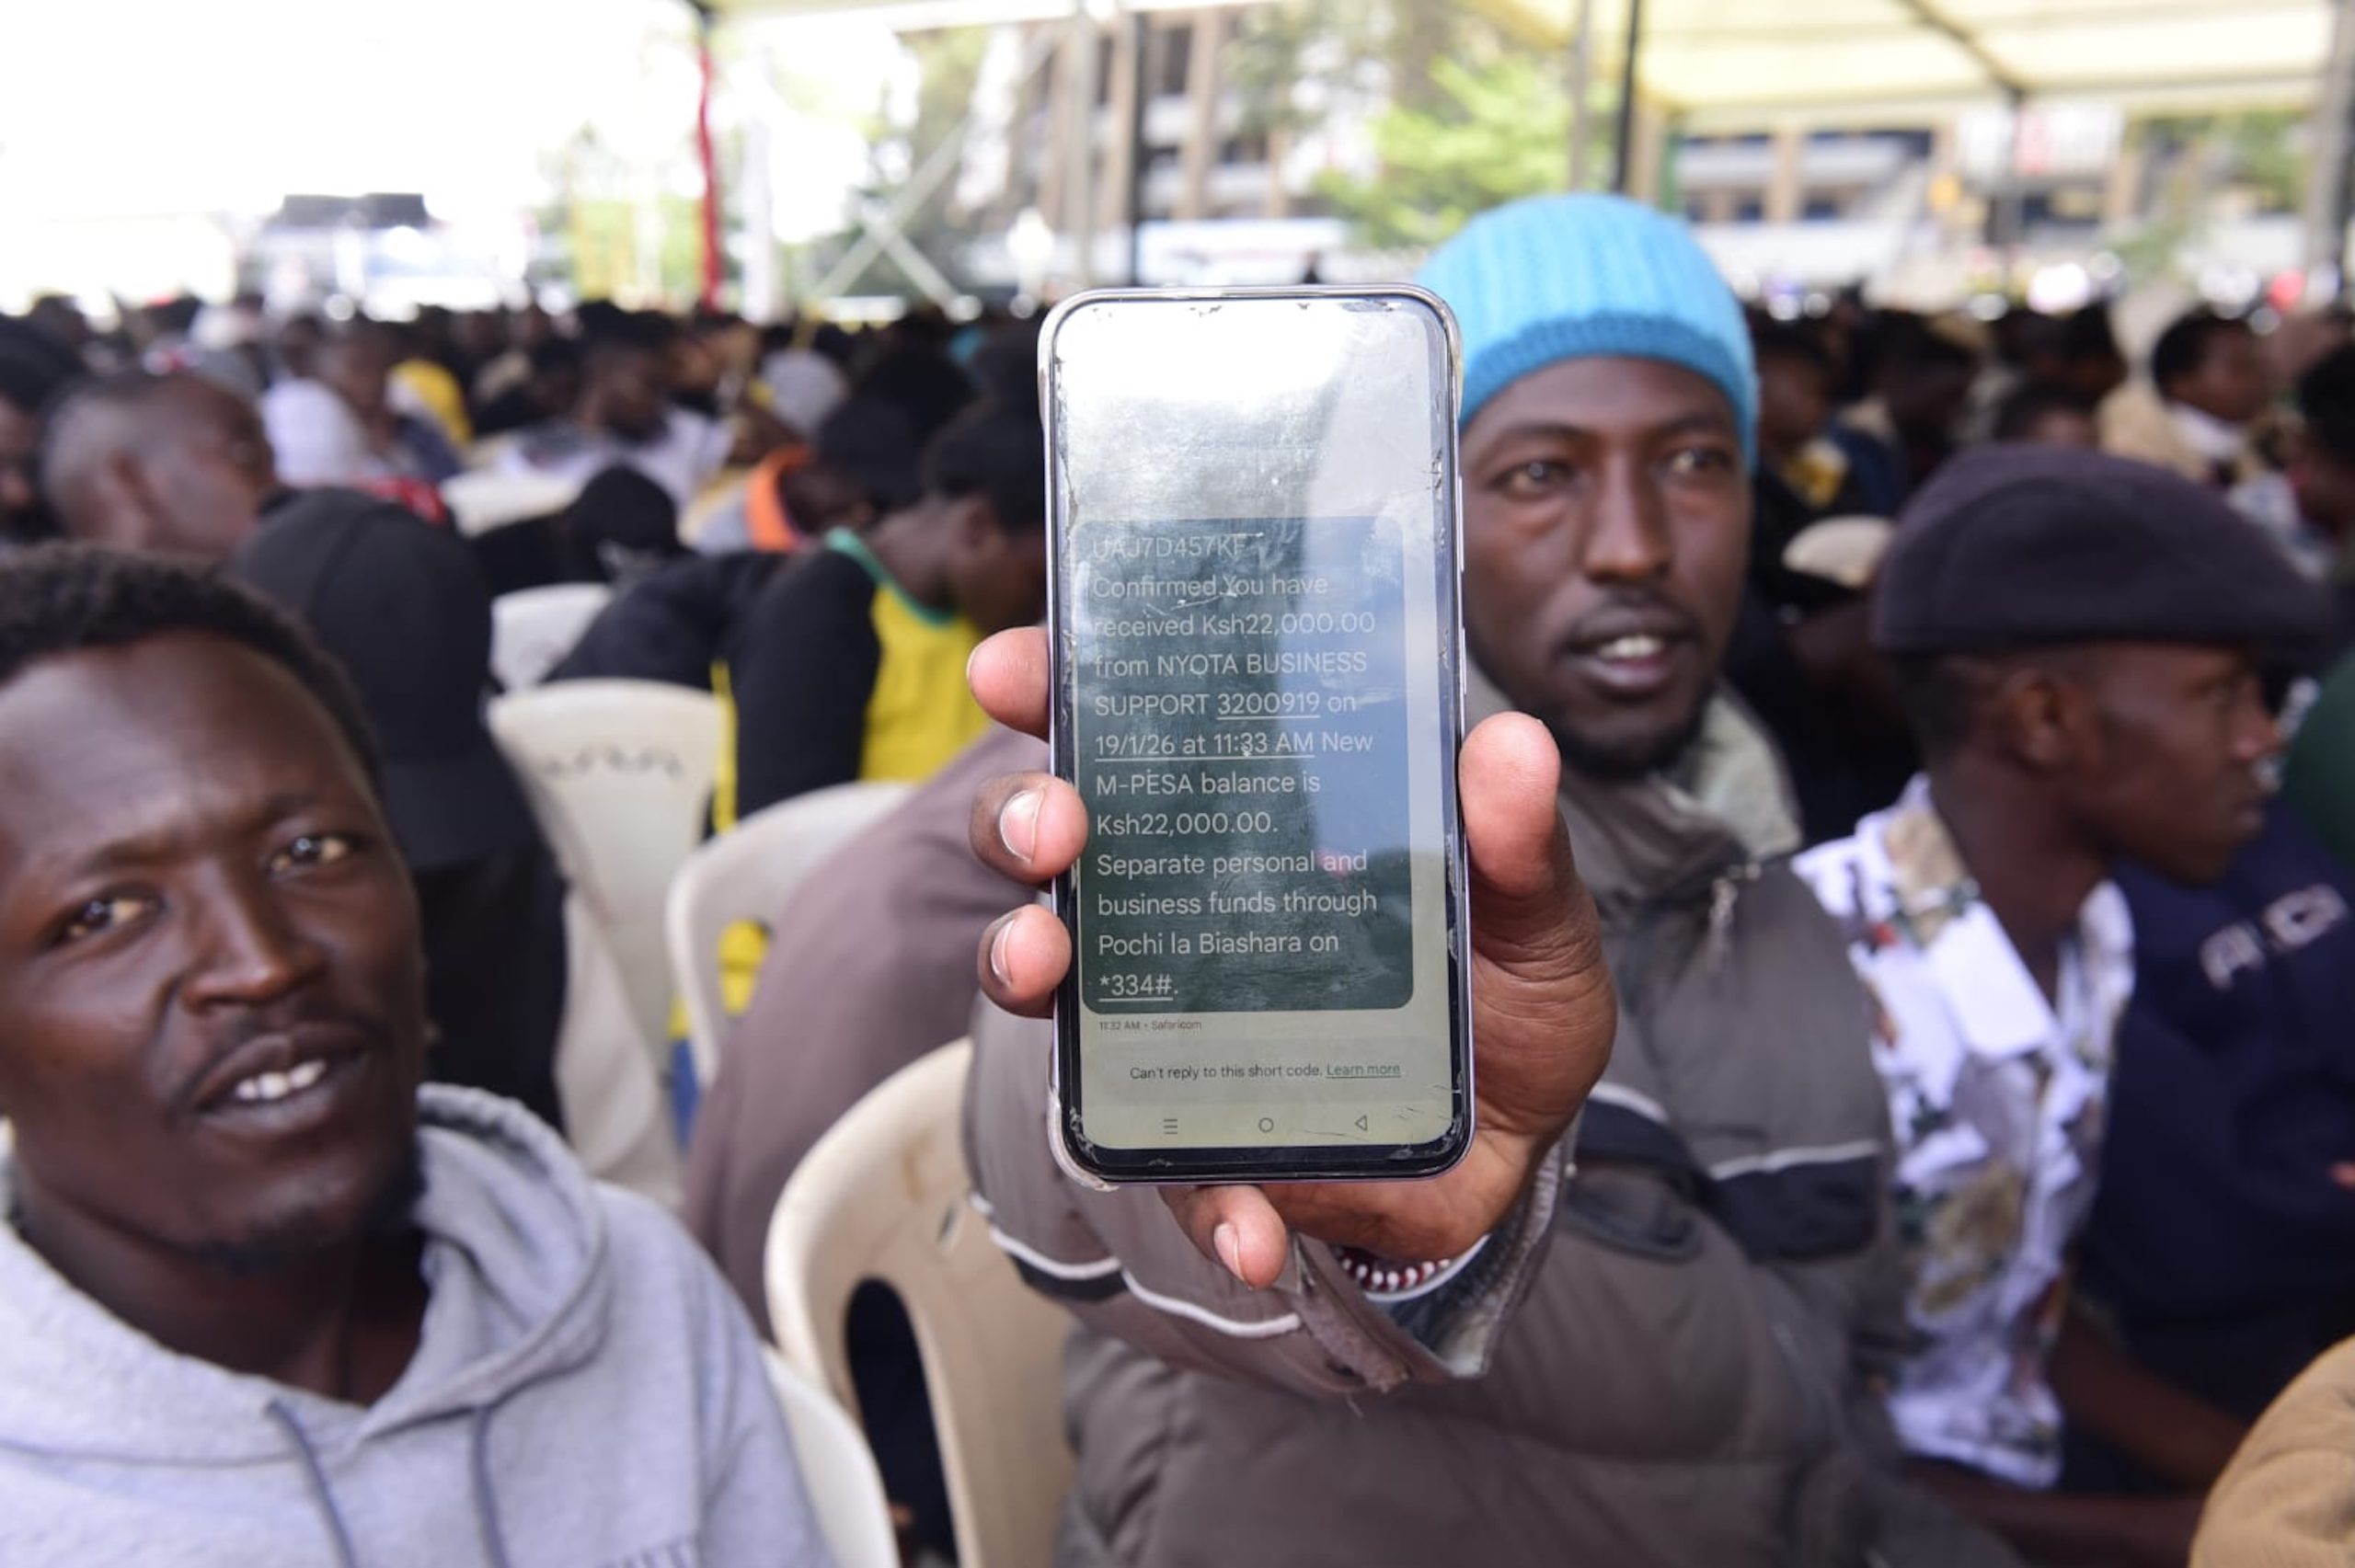 UAJ7D457KF
Confirmed.You have
received Ksh22,000.00
from NYOTA BUSINESS
SUPPORT 3200919 on
19/1/26 at 11:33 AM New
M-PESA balance is
Ksh22,000.00.
Separate personal and
business funds through
Pochi la Biashara on
*334#.
11:32 AM • Safaricom
Can't reply to this short code. Learn more